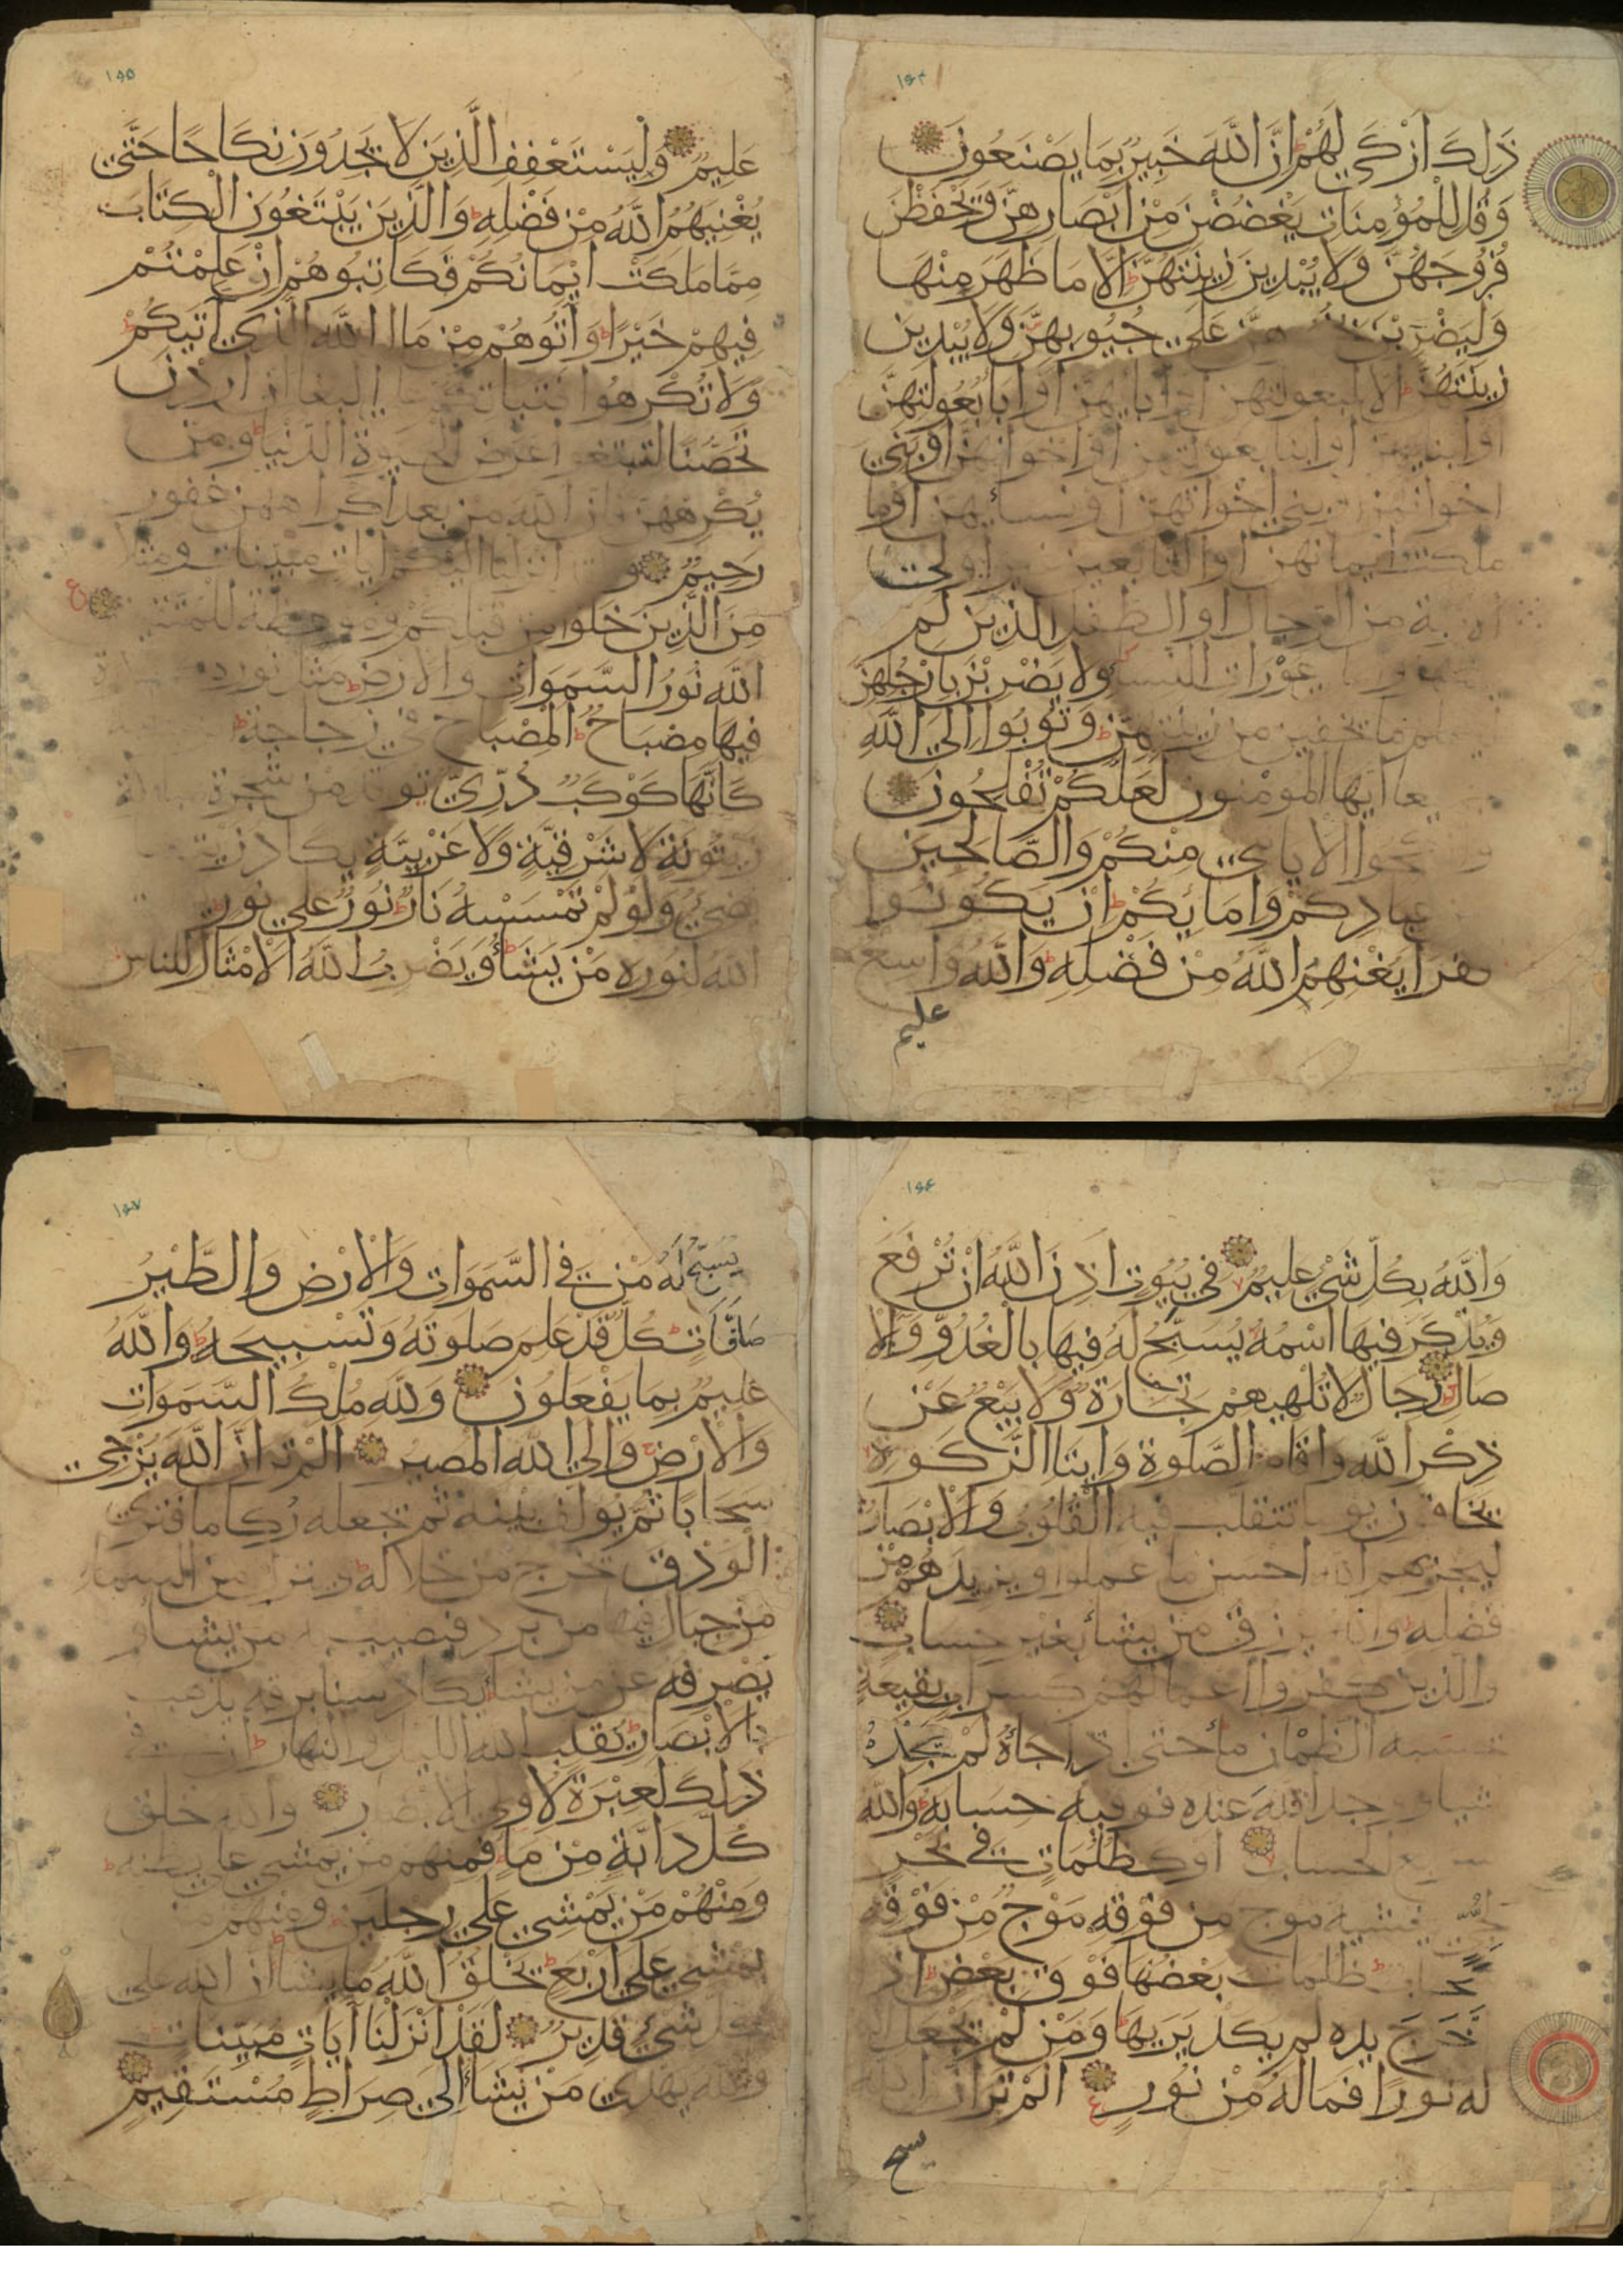 ۱۵۴
ذلك ازكي لهم ان الله خبير بما يصنعون
وقل للمؤمنات يغضضن من ابصارهن ويحفظن
فروجهن ولا يبدين زينتهن الا ما ظهر منها
وليضربن هن على جيوبهن ولا يبدين
زينتهن الا لبعولتهن او ابايهن او ابا بعولتهن
او ابنايهن او ابنا بعولتهن او اخوانهن او بني
اخوانهن او بني اخواتهن او نسائهن او ما
ملكت ايمانهن او التابعين غير اولى
من الرجال او الطفل الذين لم
عورات النساء ولا يضربن بارجلهن
ما يخفين من زينتهن وتوبوا الى الله
ايها المؤمنون لعلكم تفلحون
الايامى منكم والصالحين
عبادكم وامائكم ان يكونوا
فقرا يغنهم الله من فضله والله واسع
عليم
۱۵۵
عليم وليستعفف الذين لا يجدون نكاحا حتى
يغنيهم الله من فضله والذين يبتغون الكتاب
مما ملكت ايمانكم فكاتبوهم ان علمتم
فيهم خيرا وآتوهم من مال الله الذي آتيكم
ولا تكرهوا فتياتكم على البغا ان اردن
تحصنا لتبتغوا عرض الحيوة الدنيا ومن
يكرههن فان الله من بعد اكراههن غفور
رحيم انزلنا اليكم ايات مبينات ومثلا
من الذين خلوا من قبلكم وموعظة للمتقين
الله نور السموات والارض مثل نوره
فيها مصباح المصباح في زجاجة
كانها كوكب دري توقد من شجرة
زيتونة لا شرقية ولا غربية يكاد زيتها
يضئ ولو لم تمسسه نار نور على نور
الله لنوره من يشاء ويضرب الله الامثال للناس
۱۵۶
والله بكل شئ عليم في بيوت اذن الله ان ترفع
ويذكر فيها اسمه يسبح له فيها بالغدو والا
صال رجال لا تلهيهم تجارة ولا بيع عن
ذكر الله واقام الصلوة وايتا الزكوة
يخافون يوما تتقلب فيه القلوب والابصار
ليجزيهم الله احسن ما عملوا ويزيدهم من
فضله والله يرزق من يشا بغير حساب
والذين كفروا اعمالهم كسراب بقيعة
يحسبه الظمان ما حتى اذا جاه لم يجده
شيا ووجد الله عنده فوفيه حسابه والله
سريع الحساب او كظلمات في بحر
لجي يغشيه موج من فوقه موج من فوقه
سحاب ظلمات بعضها فوق بعض اذا
اخرج يده لم يكد يريها ومن لم يجعل الله
له نورا فما له من نور الم تر ان الله
يسبح
۱۵۷
يسبح له من في السموات والارض والطير
صافات كل قد علم صلوته وتسبيحه والله
عليم بما يفعلون ولله ملك السموات
والارض والى الله المصير الم تر ان الله يزجي
سحابا ثم يولف بينه ثم يجعله ركاما فترى
الودق يخرج من خلاله وينزل من السماء
من جبال فيها من برد فيصيب به من يشاء و
يصرفه عن من يشا يكاد سنا برقه يذهب
بالابصار يقلب الله الليل والنهار ان في
ذلك لعبرة لاولي الابصار والله خلق
كل دابة من ما فمنهم من يمشي على بطنه
ومنهم من يمشي على رجلين ومنهم من
يمشي على اربع يخلق الله ما يشا ان الله على
كل شئ قدير لقد انزلنا آيات مبينات
والله يهدي من يشاء الى صراط مستقيم